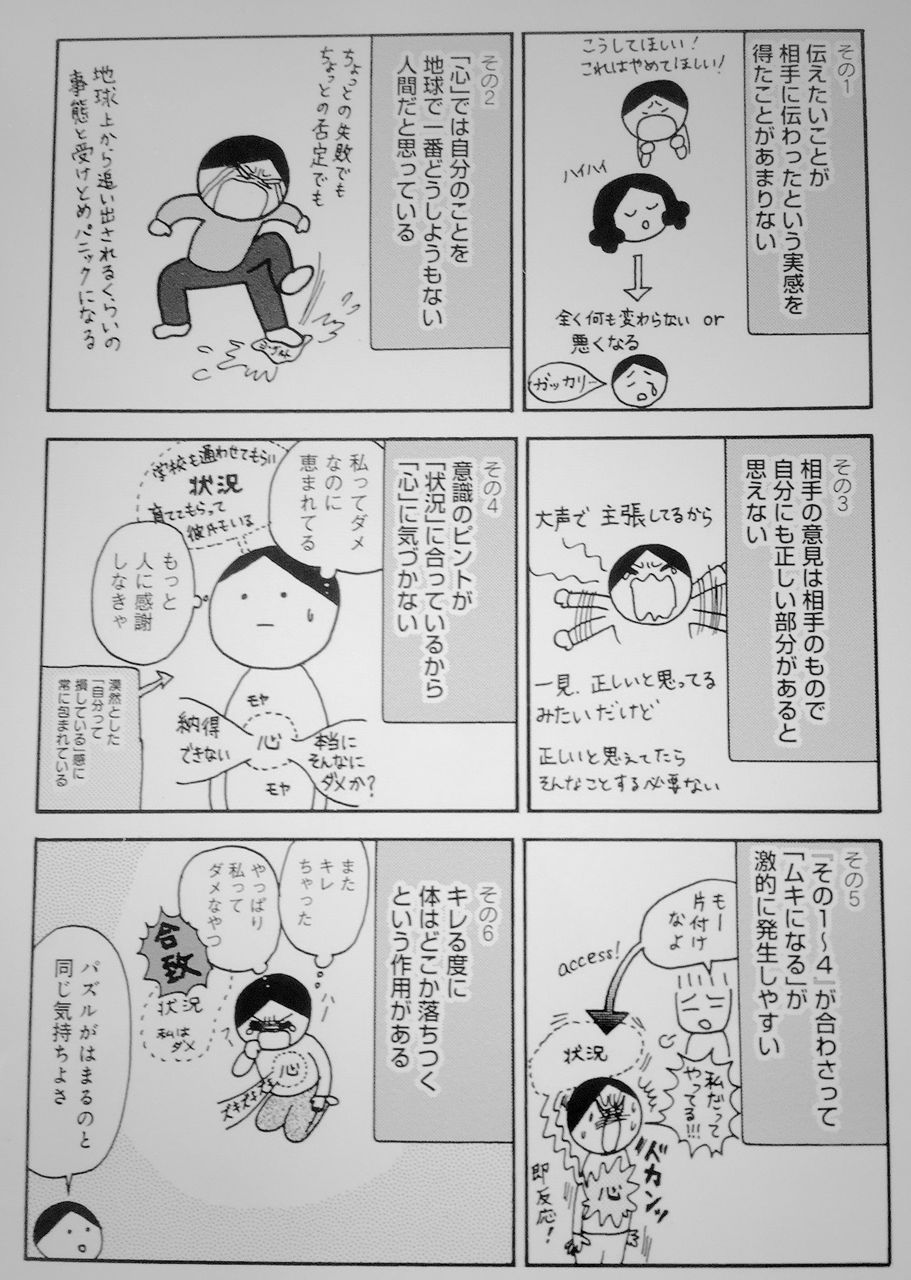 その1
伝えたいことが
相手に伝わったという実感を
得たことがあまりない
こうしてほしい!
これはやめてほしい!
ハイハイ
全く何も変わらない or
悪くなる
ガッカリ…
その2
「心」では自分のことを
地球で一番どうしようもない
人間だと思っている
ちょっとの失敗でも
ちょっとの否定でも
地球上から追い出されるくらいの
事態と受けとめパニックになる
ヨーグルト
その3
相手の意見は相手のもので
自分にも正しい部分があると
思えない
大声で主張してるから
一見、正しいと思ってる
みたいだけど
正しいと思えてたら
そんなことする必要ない
その4
意識のピントが
「状況」に合っているから
「心」に気づかない
私ってダメ
なのに
恵まれてる
学校も通わせてもらい
状況
育ててもらって
彼氏もいる
もっと
人に感謝
しなきゃ
漠然とした
「自分って
損している」感に
常に包まれている
モヤ
心
モヤ
納得
できない
本当に
そんなに
ダメか?
その5
『その1〜4』が合わさって
「ムキになる」が
激的に発生しやすい
もー
片付け
なよ
access!
状況
私だって
やってる!!!
ドカンッ
心
即反応!
その6
キレる度に
体はどこか落ちつく
という作用がある
また
キレ
ちゃった
やっぱり
私って
ダメなやつ
合致
状況
私は
ダメ
心
ズキズキズキ
パズルがはまるのと
同じ気持ちよさ